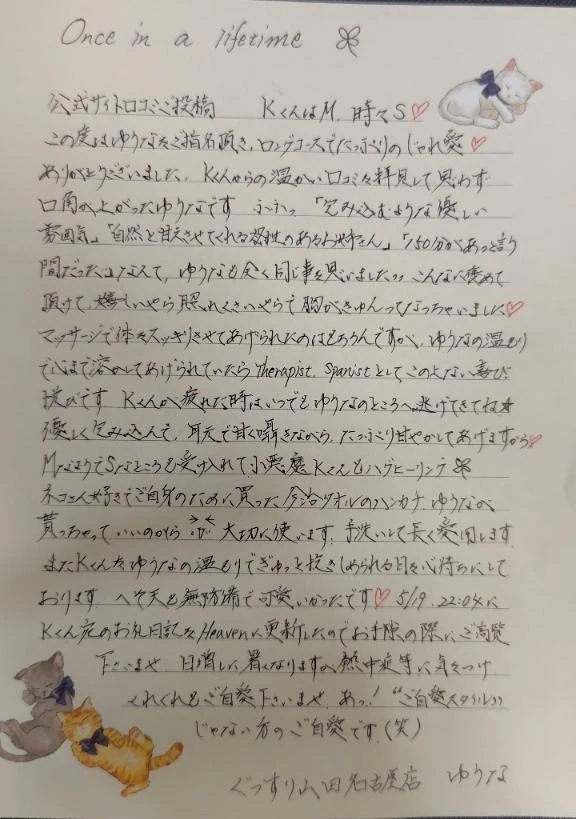 Once in a lifetime
公式サイト口コミご投稿 KくんはM、時々S♡
この度はゆうなをご指名頂き、ロングコースでたっぷりのじゃれ愛♡
ありがとうございました。Kくんからの温かい口コミを拝見して思わず
口角が上がったゆうなです ふふっ 「包み込むような優しい
雰囲気」「自然と甘えさせてくれる母性のあるお姉さん」「150分があっと言う
間だった」なんて、ゆうなも全く同じ事を思いました〃 こんなに褒めて
頂けて、嬉しいやら照れくさいやらで胸がきゅんってなっちゃいました♡
マッサージで体をスッキリさせてあげられたのはもちろんですが、ゆうなの温もり
で心まで溶かしてあげられていたらtherapist、spanistとしてこの上ない喜び
です Kくんが疲れた時はいつでもゆうなのところへ逃げてきてね☆
優しく包み込んで、耳元で甘く囁きながら、たっぷり甘やかしてあげますから♡
MなようでSなところも受け入れて小悪魔Kくんもハグヒーリング
ネコさん好きでご自身のために買った今治タオルのハンカチ、ゆうなが
貰っちゃっていいのかな 大切に使います。手洗いして長く愛用します
またKくんをゆうなの温もりでぎゅっと抱きしめられる日を心待ちにして
おります。へそ天も無防備で可愛いかったです♡ 5/19、22:04に
Kくん宛のお礼日記をHeavenに更新したのでお手隙の際にご高覧
下さいませ 日増しに暑くなりますが熱中症等に気をつけ
くれぐれもご自愛下さいませ あっ！“ご自愛スタイル〃
じゃない方のご自愛です（笑）
ぐっすり山田名古屋店 ゆうな